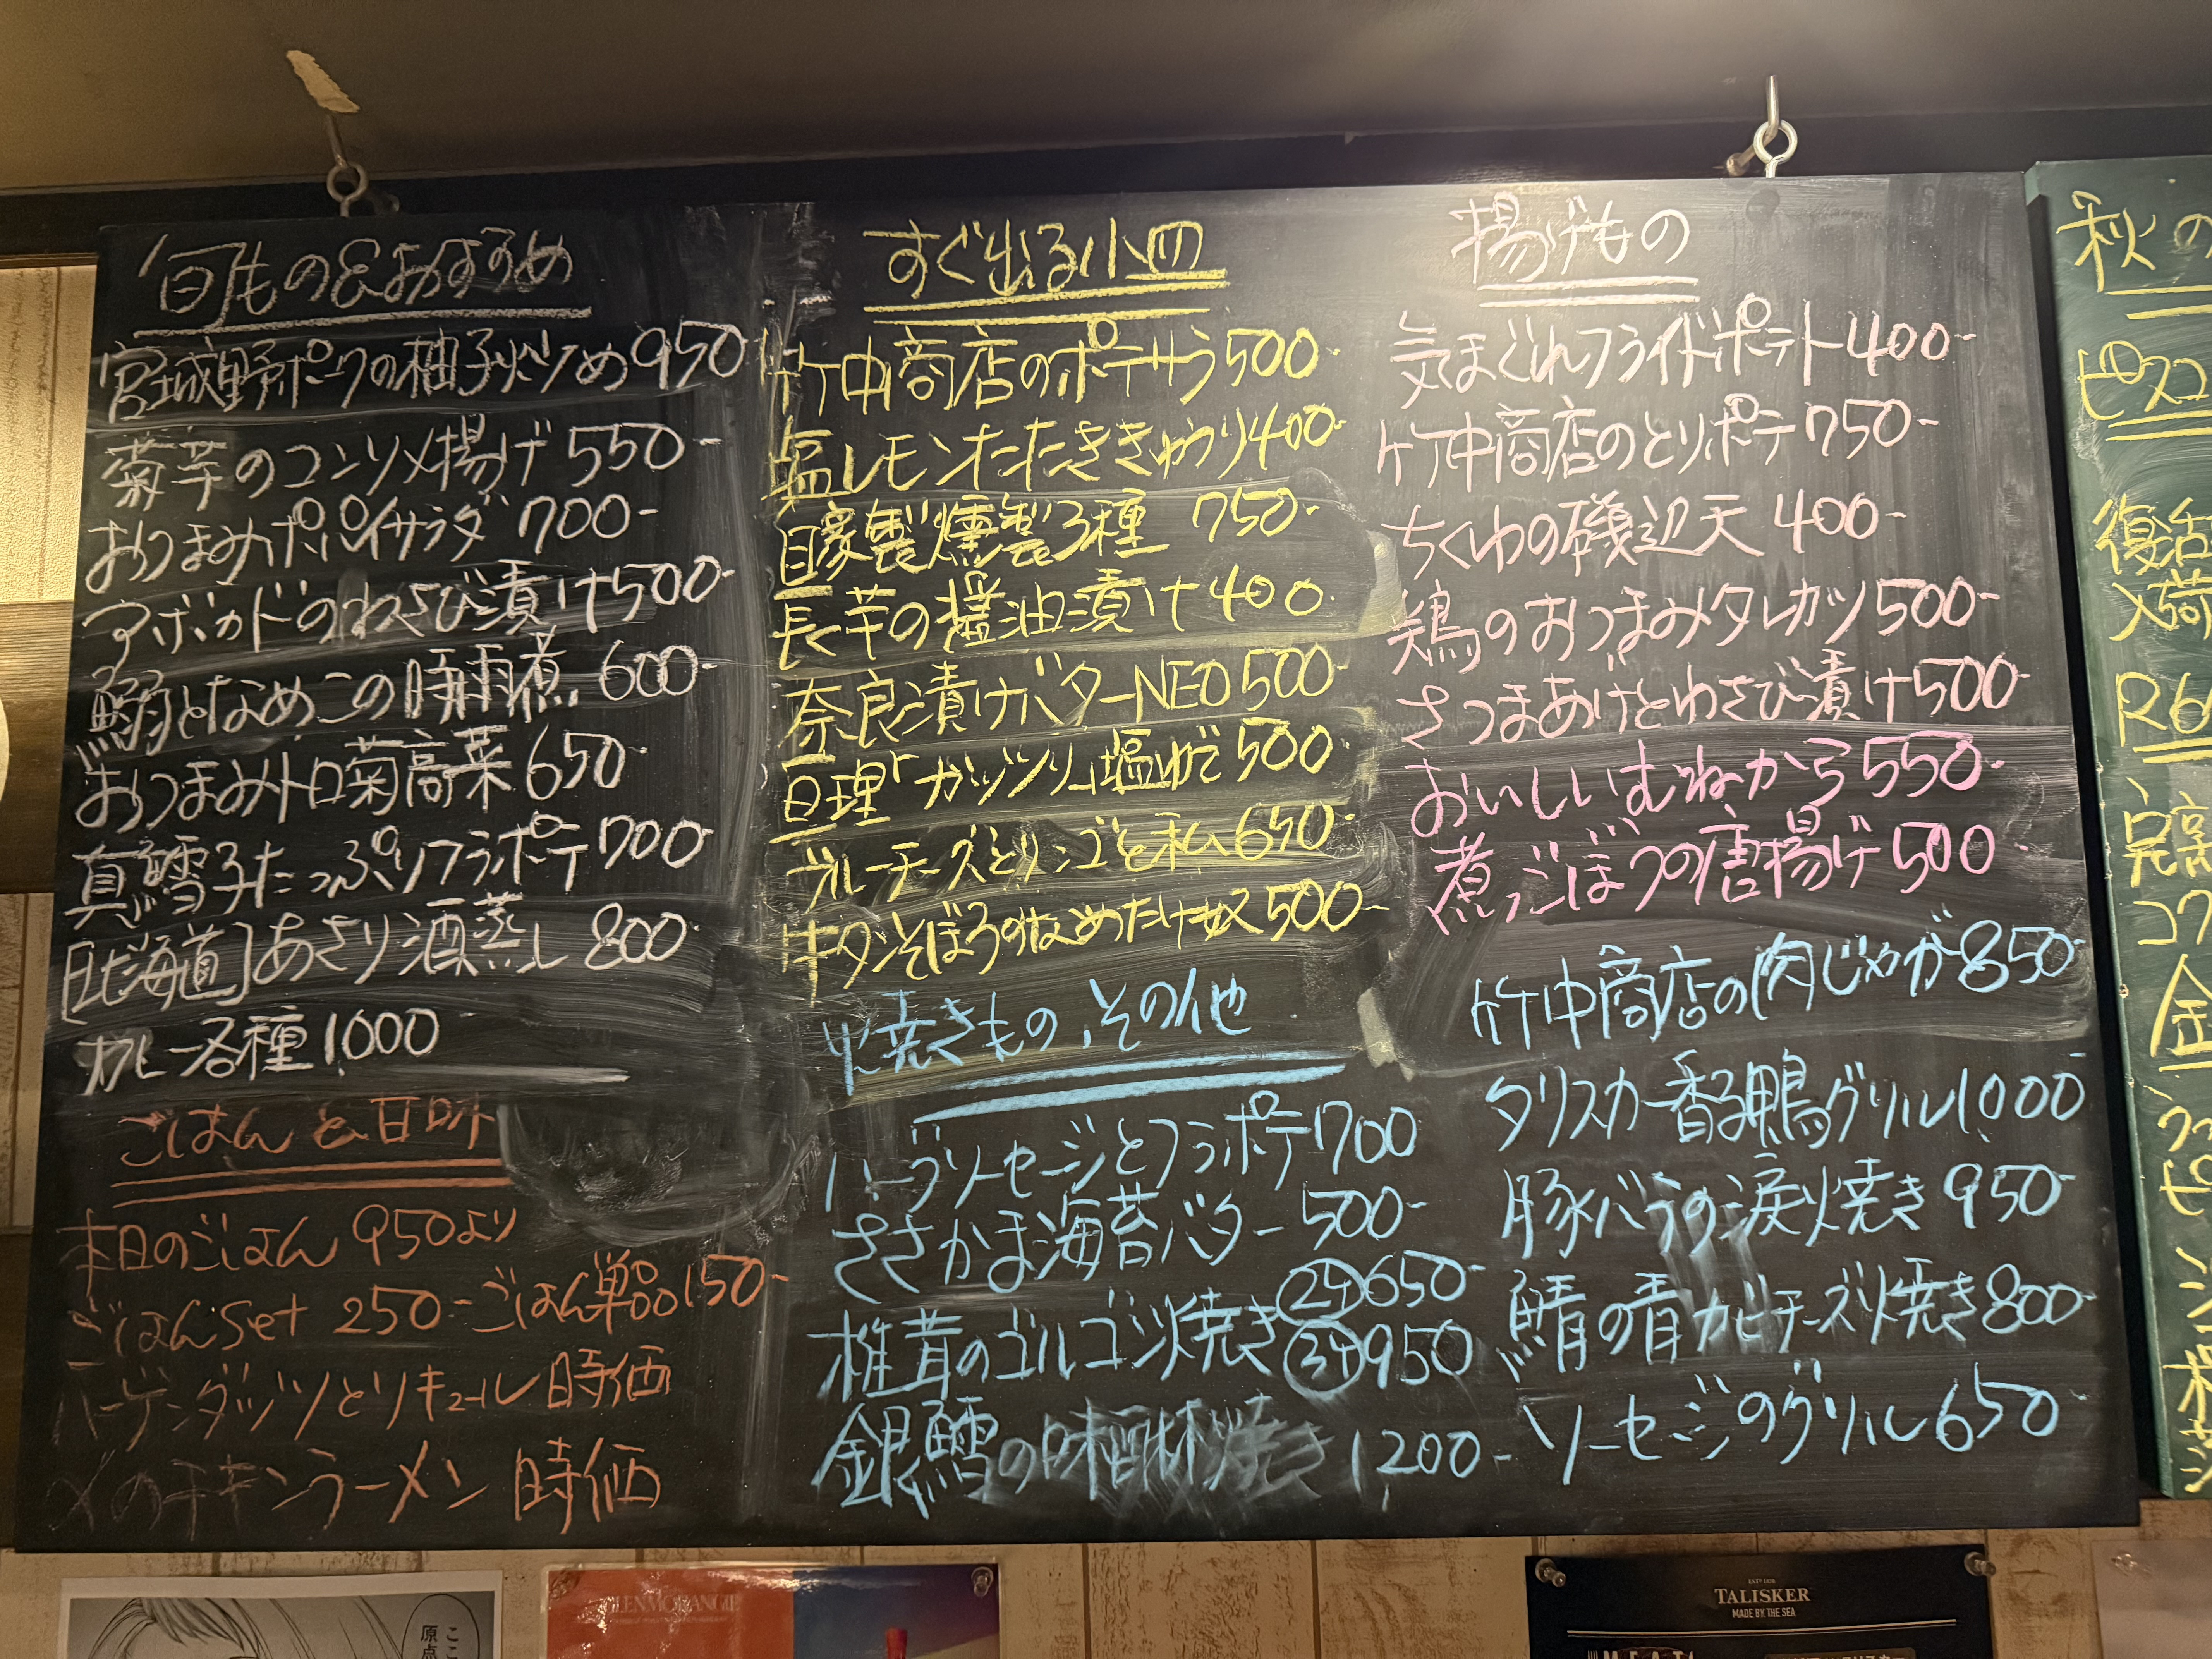 旬もの&おすすめ
宮城野ポークの柚子炒め950-
菊芋のコンソメ揚げ 550-
おつまみポパイサラダ 700-
アボカドのわさび漬け500-
鰯となめこの時雨煮 600-
おつまみトロ菊高菜 650-
真鱈子たっぷりフラポテ700-
[北海道]あさり酒蒸し 800-
カヒー各種 1000
ごはんと甘味
本日のごはん 950より
ごはんset 250- ごはん単品150-
ハーゲンダッツとリキュール 時価
〆のチキンラーメン 時価
すぐ出る小皿
竹中商店のポテサラ500-
塩レモンたたききゅうり400-
自家製燻製3種 750-
長芋の醤油漬け400-
奈良漬けバターNEO500-
亘理「ガッツリ」塩ゆで500-
ブルーチーズとリンゴと私650-
牛タンそぼろのなめたけ奴500-
焼きもの、その他
ハーブソーセージとフラポテ700
ささかま海苔バター 500-
椎茸のゴルゴンゾ焼き ②ケ650-
③ケ950
銀鱈の味醂焼き 1200-
揚げもの
気まぐれフライドポテト400-
竹中商店のとりポテ750-
ちくわの磯辺天 400-
鶏のおつまみタレカツ500-
さつまあげとわさび漬け500-
おいしいむねから550-
煮ごぼうの唐揚げ500-
竹中商店の肉じゃが850-
タリスカー香る鴨グリル1000-
豚バラの涙焼き 950-
鯖の青カビチーズ焼き800-
ソーセージのグリル650-
秋の
ピスコ
復活
入荷
R6
完
コク
金
ここ
原点
GLENMORANGIE
ESTD 1830
TALISKER
MADE BY THE SEA
MEAT